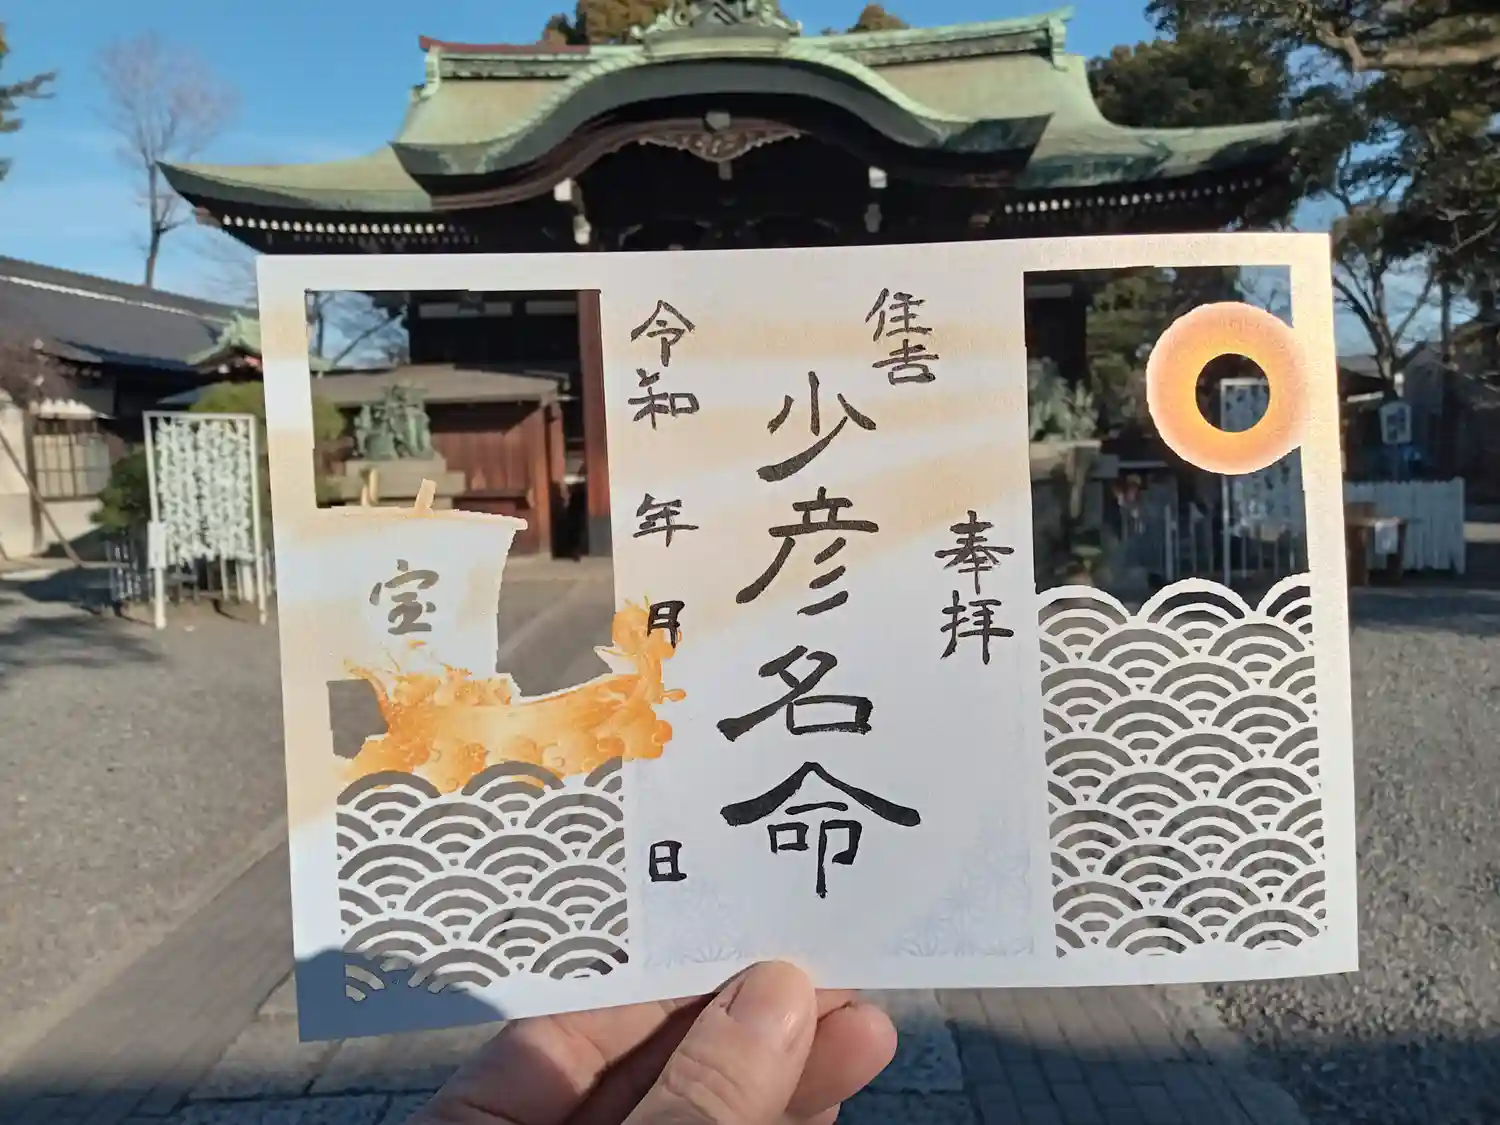 奉拝
住吉
少彦名命
令和 年 月 日
宝